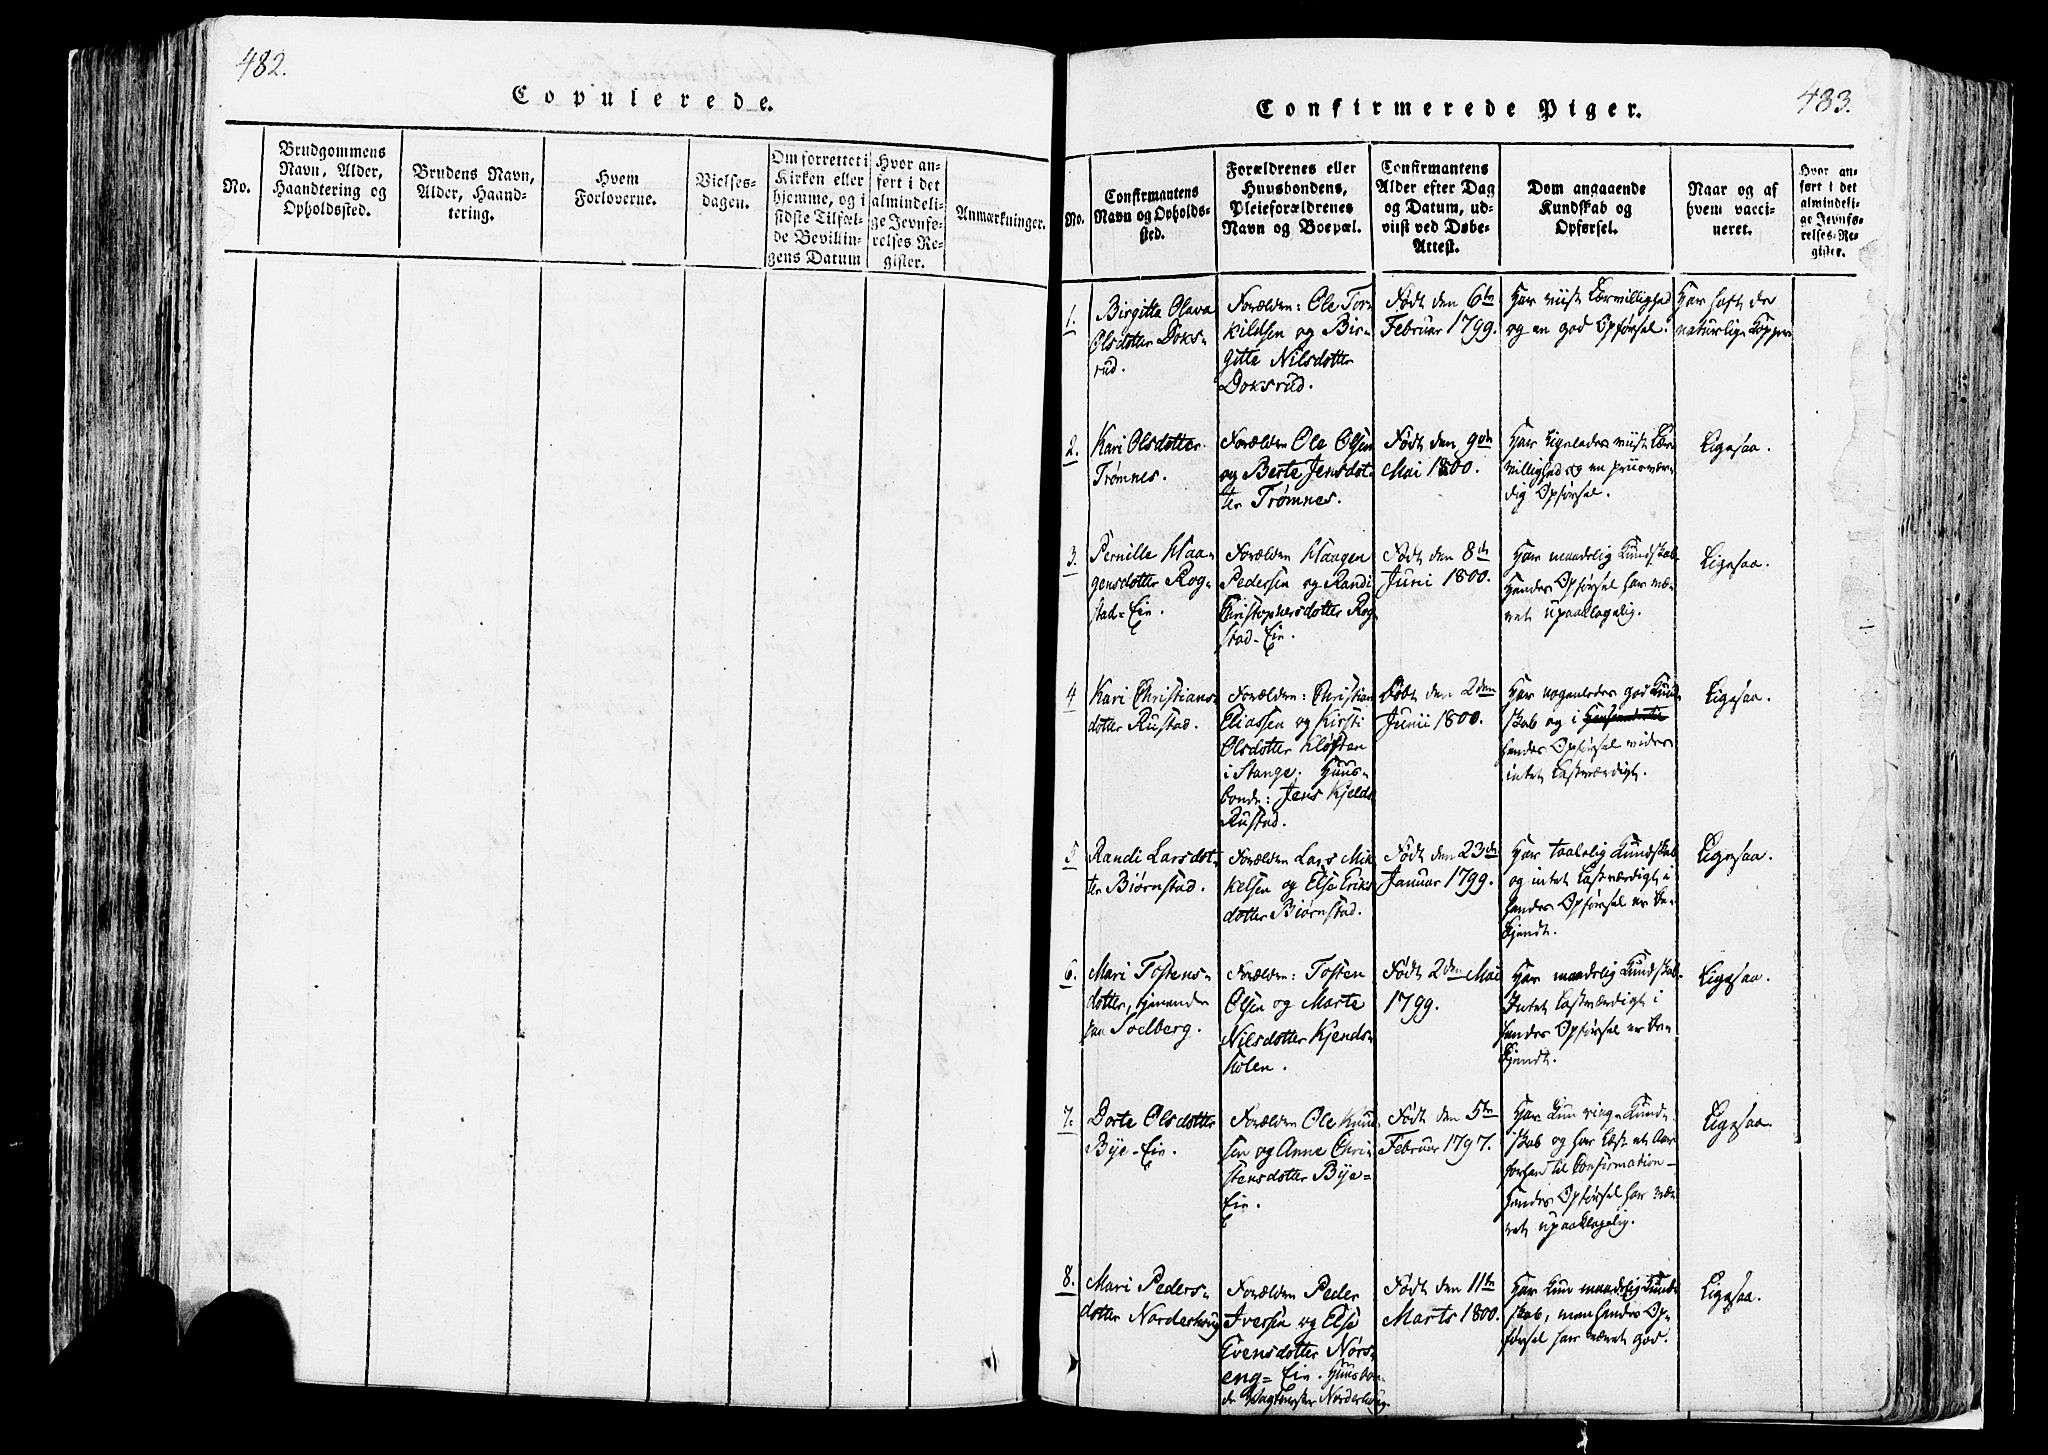 482.
Copulerede.
No.
Brudgommens
Navn, Alder,
Haandtering og
Opholdssted.
Brudens Navn,
Alder, Haand-
tering.
Hvem
Forloverne.
Vielses-
dagen.
Om forrettet i
Kirken eller
hjemme, og i
sidste Tilfæl-
de Bevillin-
gens Datum
Hvor an-
ført i det
almindeli-
ge Jevnfø-
relses Re-
gister.
Anmærkninger.
483.
Confirmerede Piger.
No.
Confirmantens
Navn og Opholds-
sted.
Forældrenes eller
Huusbondens,
Pleieforældrenes
Navn og Boepæl.
Confirmantens
Alder efter Dag
og Datum, ud-
viist ved Døbe-
Attest.
Dom angaaende
Kundskab og
Opførsel.
Naar og af
hvem vacci-
neret.
Hvor an-
ført i det
almindeli-
ge Jevnfø-
relses-Re-
gister.
1.
Birgitta Olava
Olsdotter Doks-
rud.
Forældre: Ole Tor
kildsen og Bir-
gitte Nilsdotter
Doksrud.
Født den 6te
Februar 1799.
Har viist Lærvillighed
og en god Opførsel.
Har haft de
naturlige Kopper
2.
Kari Olsdotter
Trømnes.
Forældre Ole Olsen
og Berte Jensdot-
ter Trømnes.
Født den 9de
Mai 1800.
Har ligeledes viist Lær-
villighed og en priisvær-
dig Opførsel.
Ligesaa.
3.
Pernille Haa-
gensdotter Rog-
stad-Eie.
Forældre Haagen
Pedersen og Randi
Christophersdotter Rog
stad-Eie.
Født den 8de
Juni 1800.
Har maadelig Kundskab
Hendes Opførsel har væ-
ret upaaklagelig.
Ligesaa.
4
Kari Christians-
dotter Rustad.
Forældre: Christian
Eliassen og Kirsti
Olsdotter Kløften
i Stange. Huus-
bonde: Jens Kjelds
Rustad.
Født den 2den
Junii 1800.
Har nogenledes god Kund-
skab og i
hendes Opførsel vides
intet Lastværdigt.
Ligesaa.
5
Randi Larsdot-
ter Biørnstad.
Forældre Lars Mik
kelsen og Else Eriks
dotter Biørnstad.
Født den 23de
Januar 1799.
Har taalelig Kundskab
og intet Lastværdigt i
hendes Opførsel er be-
kjendt.
Ligesaa.
6.
Mari Tostens-
dotter, tjenende
paa Solberg.
Forældre: Tosten
Olsen og Marte
Nilsdotter Kjends-
stolen.
Født 2den Mai
1799.
Har maadelig Kundskab.
Intet Lastværdigt i
hendes Opførsel er be-
kjendt.
Ligesaa.
7.
Dorte Olsdotter
Bye-Eie.
Forældre Ole Knud
sen og Anne Chri-
stensdotter Bye-
Eie.
Født den 5te
Februar 1797.
Har kun ringe Kund-
skab og har læst et Aar
forhen til Confirmation -
Hendes Opførsel har væ-
ret upaaklagelig.
Ligesaa.
8.
Mari Peders-
dotter Norderhoug
Forældre Peder
Iversen og Else
Evensdotter Nørs-
eng-Eie. Huusbon-
de Norderhoug
Født den 11te
Marts 1800.
Har kun maadelig Kund-
skab, men hendes Op-
førsel har været god.
Ligesaa.